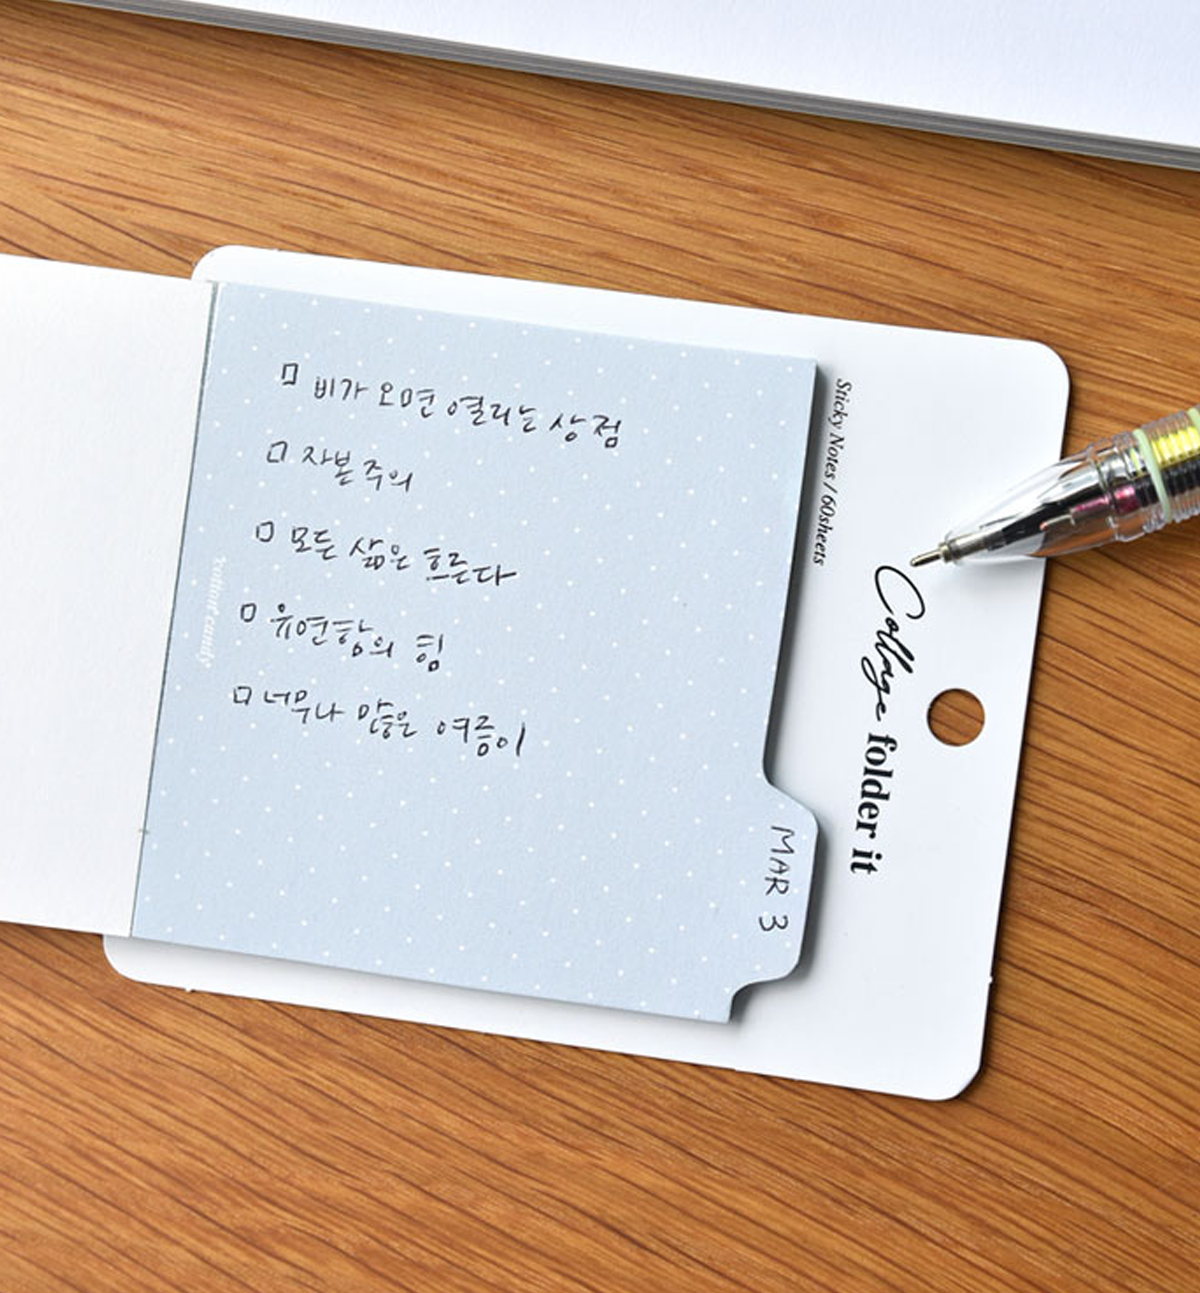 □ 비가 오면 열리는 상점
□ 자본주의
□ 모든 삶은 흐른다
□ 유연함의 힘
□ 너무나 많은 여름이
MAR 3
Sticky Notes / 60sheets
Collage folder it